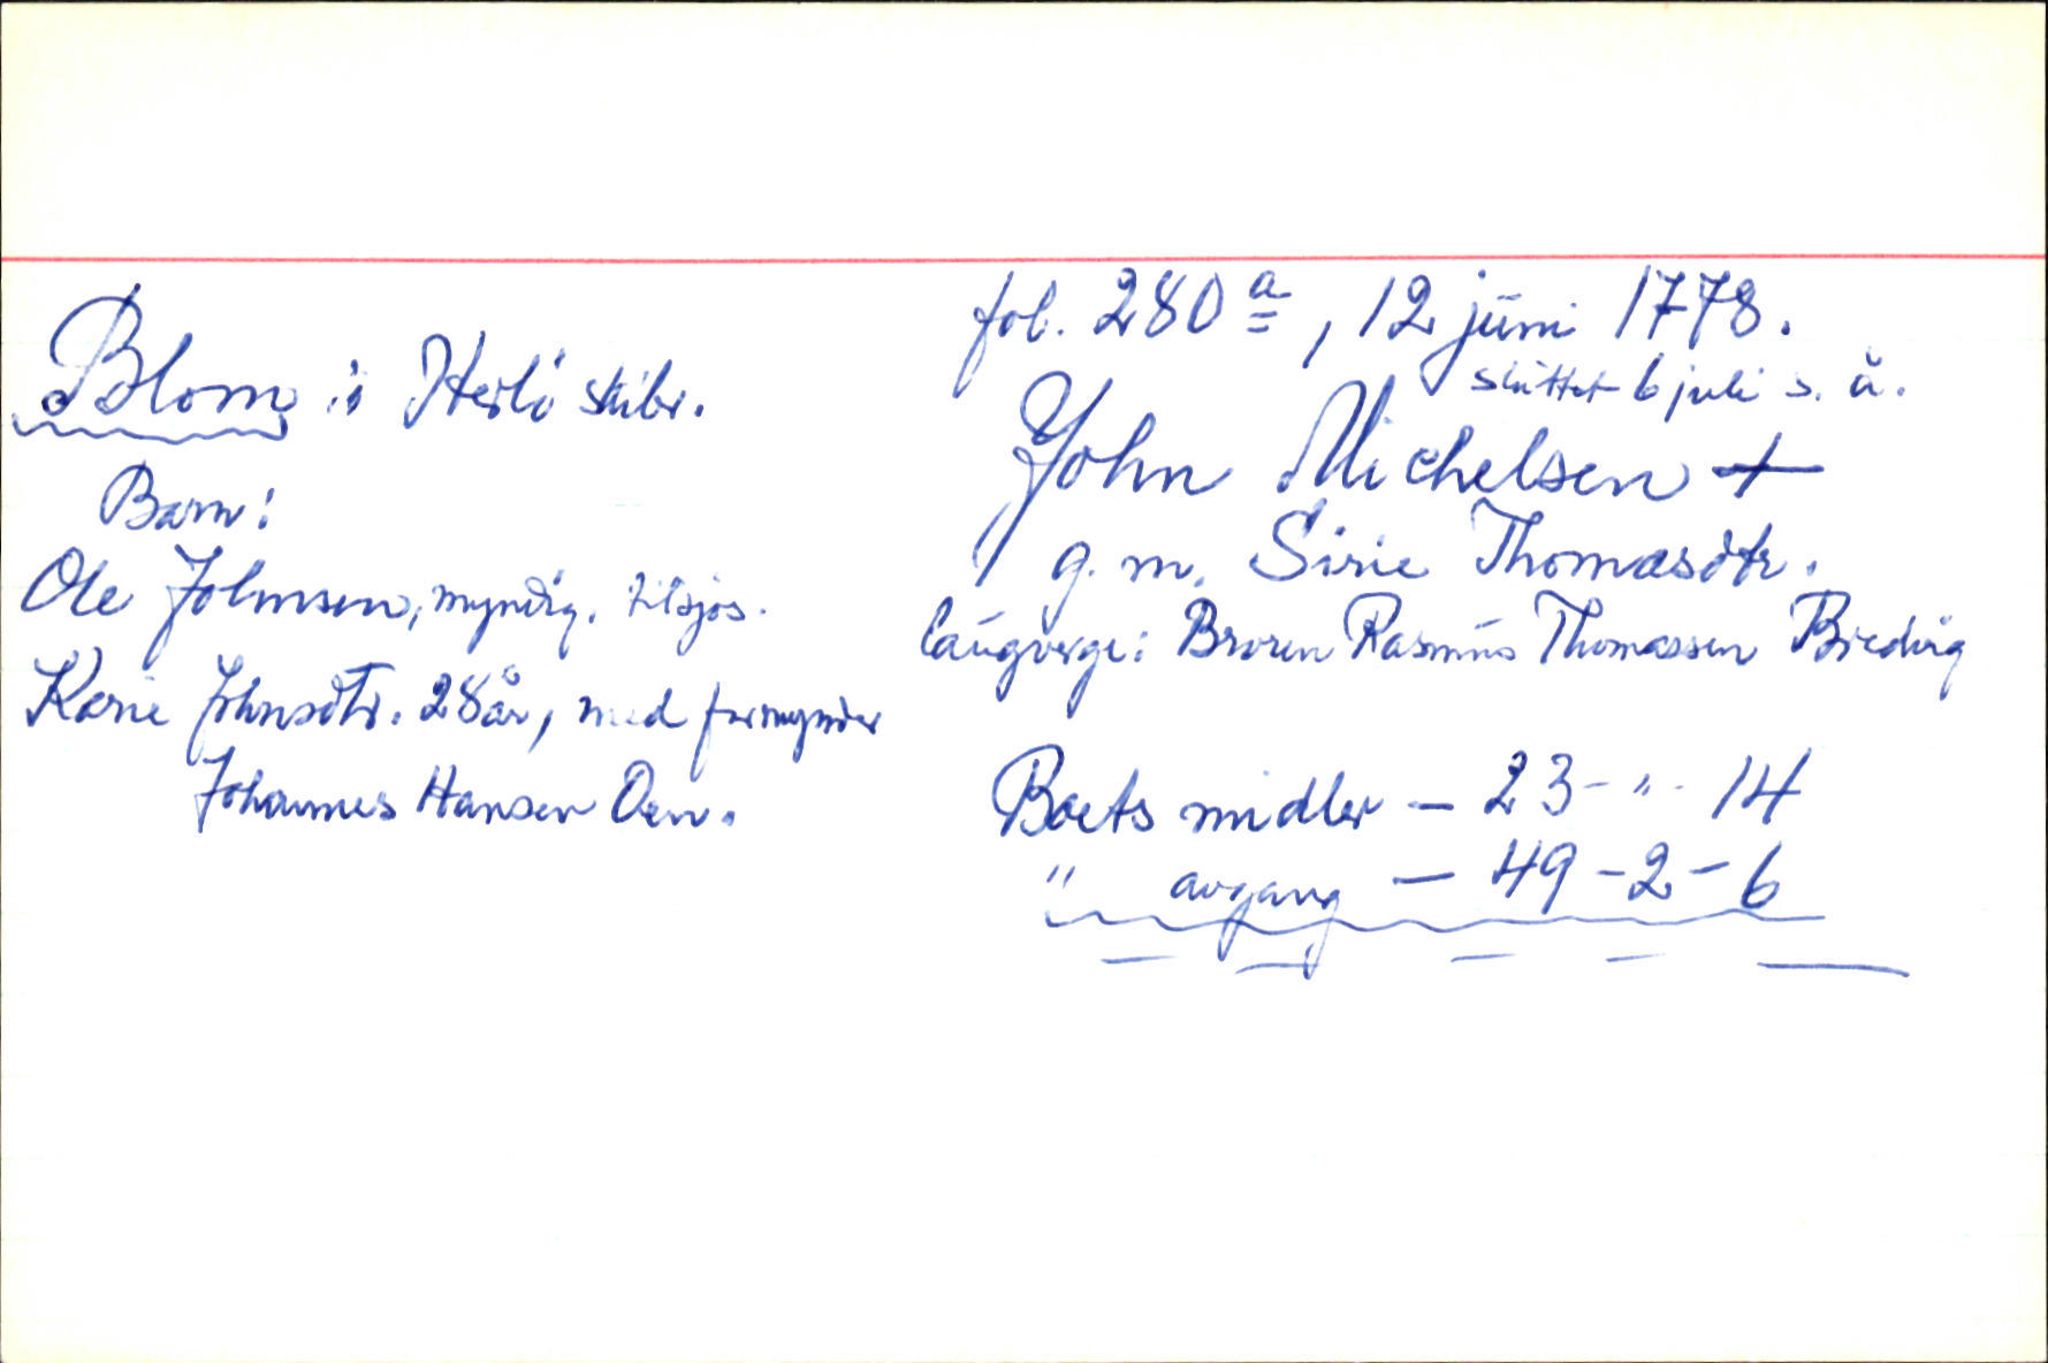 fol. 280 a, 12 juni 1778.
sluttet 6 juli s. å.
Blom i Herlö skibr.
John Michelsen +
g. m. Sirie Thomasdtr.
laugverge: Broren Rasmus Thomassen Bredvig
Barn:
Ole Johnsen, myndig, tilsjøs.
Karie Johnsdtr. 28 år, med formynder
Johannes Hansen Oen.
Boets midler — 23 - " - 14
" avgang — 49 - 2 - 6